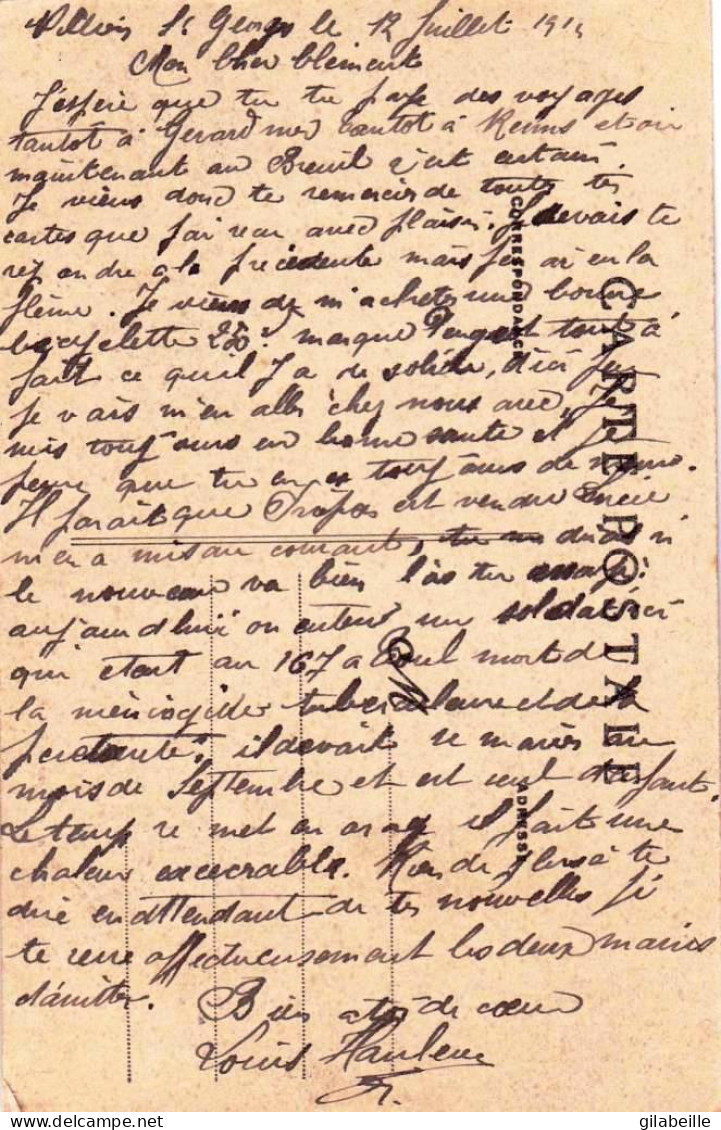 St Georges le 12 Juillet 191
Mon cher
J'espère que tu te paye des voyages
tantôt à Gerardmer tantôt à Reims et
maintenant au Breuil c'est
Je viens donc te remercier de toutes tes
cartes que j'ai reçu avec plaisir. Je devais te
répondre a la précédente mais j'en ai eu la
flème. Je viens de m'acheter une bonne
bicyclette 250f marque Peugeot tout à
fait ce qu'il y a de solide, d'ici
je vais m'en aller chez nous avec, Je
suis toujours en bonne santé et je
pense que tu en es toujours de même.
Il parait que est vendu
m'en a mis au courant, tu me diras si
le nouveau va bien l'as tu essayé.
aujourd'hui on enterre un soldat
qui était au 167 a Toul mort de
la méningite tuberculeuse et de la
il devait se marier au
mois de Septembre et est seul enfant.
Le temps se met en orage il fait une
chaleur excecrable. Rien de plus à te
dire en attendant de tes nouvelles je
te serre affectueusement les deux mains
d'amitié.
Bien a toi de cœur
Louis
CARTE POSTALE
CORRESPONDANCE
ADRESSE
M
gilabeille